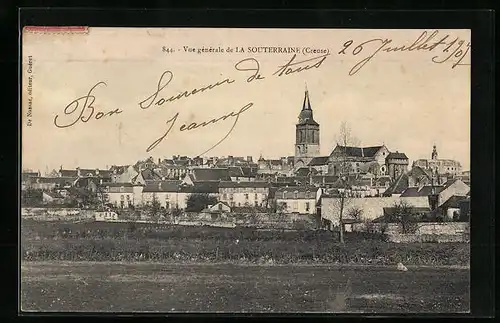 844. - Vue générale de LA SOUTERRAINE (Creuse)
26 Juillet
Bon Souvenir de tous
Jeanne
De Nussac, éditeur, Guéret